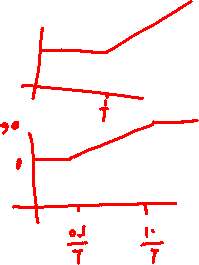 T
90
0
0.1
T
10
T